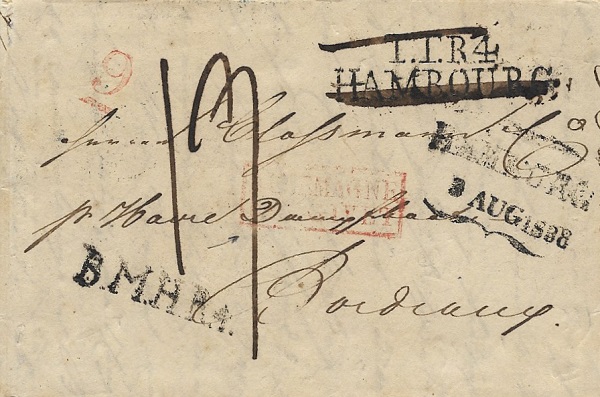 T.T.R4
HAMBOURG
9
Herren Clossmann & Co
HAMBURG
3 AUG 1838
pr Havre Dampfboot
B.M.H.R4.
Bordeaux.